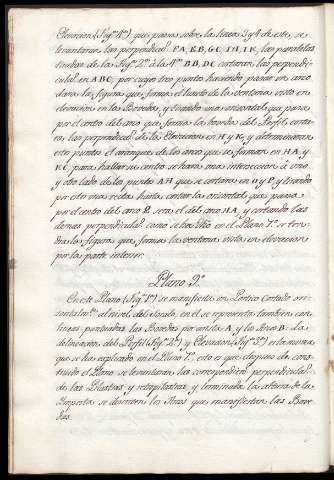 Elevacion (Fig.ª 4ª) que pasando sobre la linea 3 y 4 de este, se
levantaran las perpendicul.s F A, E B, G C, I H, I K, las parabolas
tiradas de la Fig.ª 2ª á la 4ª D B, D C cortaran las perpendi-
cula.s en A B C, por cuyos tres puntos haciendo pasar un arco
dara la figura que forma el lunéto de la ventana visto en
elevacion en las Bovedas, y tirando una orisontal que pase
por el centro del arco que forma la boveda del Perfil, corta-
ra las perpendicul.s de la Elevacion en H y K, y determinaran
estos puntos el arranque de los arcos que se forman en H A, y
K C, para hallar su centro se hara una interseccion á uno
y otro lado de los puntos A H que se cortaran en O y P, y tirando
por estos una recta hasta cortar la orisontal que pasa
por el centro del arco Q, sera el del arco H A, y cortando las
demas perpendicul.s como se ha dicho en el Plano 7.º se ten-
dra la figura que forma la ventana vista en elevacion
por la parte interior.
Plano 9.º
En este Plano (Fig.ª 1ª) se manifiesta un Portico Cortado ori-
sontalm.te al nivel del Zocalo, en el se representa tambien con
lineas puntuadas las Bovedas por arista A y los Arcos B. La
delineacion del Perfil (Fig.ª 2ª) y Elevacion (Fig.ª 3ª) es la misma
que se ha explicado en el Plano 7.º esto es que despues de cons-
truido el Plano se levantaran las correspondien.s perpendicula.s
de las Pilastras y retropilastras y terminada la altura de la
Imposta se describen los Arcos que manifiestan las Bove-
das.